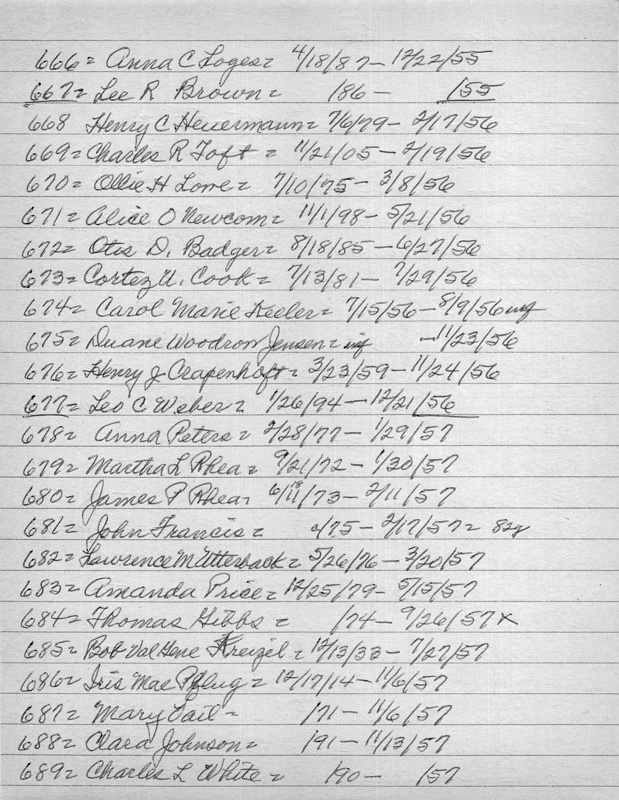 666= Anna C Loges= 4/18/87- 12/22/55
667= Lee R Brown= /86- /55
668 Henry C Heuermann= 7/6/79- 2/17/56
669= Charles R Toft = 11/21/05- 2/19/56
670= Ollie H Lowe= 7/10/75- 3/8/56
671= Alice O Newcom= 11/1/98- 5/21/56
672= Otis D. Badger= 8/18/85-6/27/56
673= Cortez U. Cook= 7/13/81- 7/29/56
674= Carol Marie Keeler= 7/15/56-8/9/56 inf
675= Duane Woodrow Jensen= inf -11/23/56
676= Henry J Crapenhoft= 3/23/59- 11/24/56
677= Leo C Weber= 1/26/94- 12/21/56
678= Anna Peters= 2/28/77- 1/29/57
679= Martha L Rhea= 9/21/72- 1/30/57
680= James P Rhea= 6/11/73- 2/11/57
681= John Francis= /75- 2/17/57= 82y
682= Lawrence M Utterback= 5/26/76- 3/20/57
683= Amanda Price= 12/25/79- 5/15/57
684= Thomas Gibbs= /74- 9/26/57x
685= Bob Val Gene Kreizel= 12/13/33- 7/27/57
686= Iris Mae Pflug= 12/17/14-11/6/57
687= Mary Vail= /71- 11/6/57
688= Clara Johnson= /91- 11/13/57
689= Charles L White= /90- /57